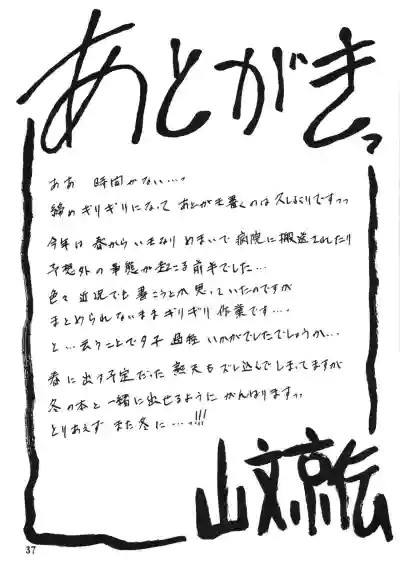 あとがきっ
ああ 時間がない…っ
締めギリギリになって あとがき書くのは久しぶりですっっ
今年は 春から いきなり めまいで 病院に搬送されたり
予想外の事態が起こる前半でした…
色々 近況でも 書こうとか 思っていたのですが
まとめられないまま ギリギリ 作業です…。
と…云うことで
いかがでしたでしょうか…
春に出す予定だった
も ズレ込んでしまってますが
冬の本と 一緒に出せるように がんばりますっっ
とりあえず また冬に…っ!!!
山文京伝
37